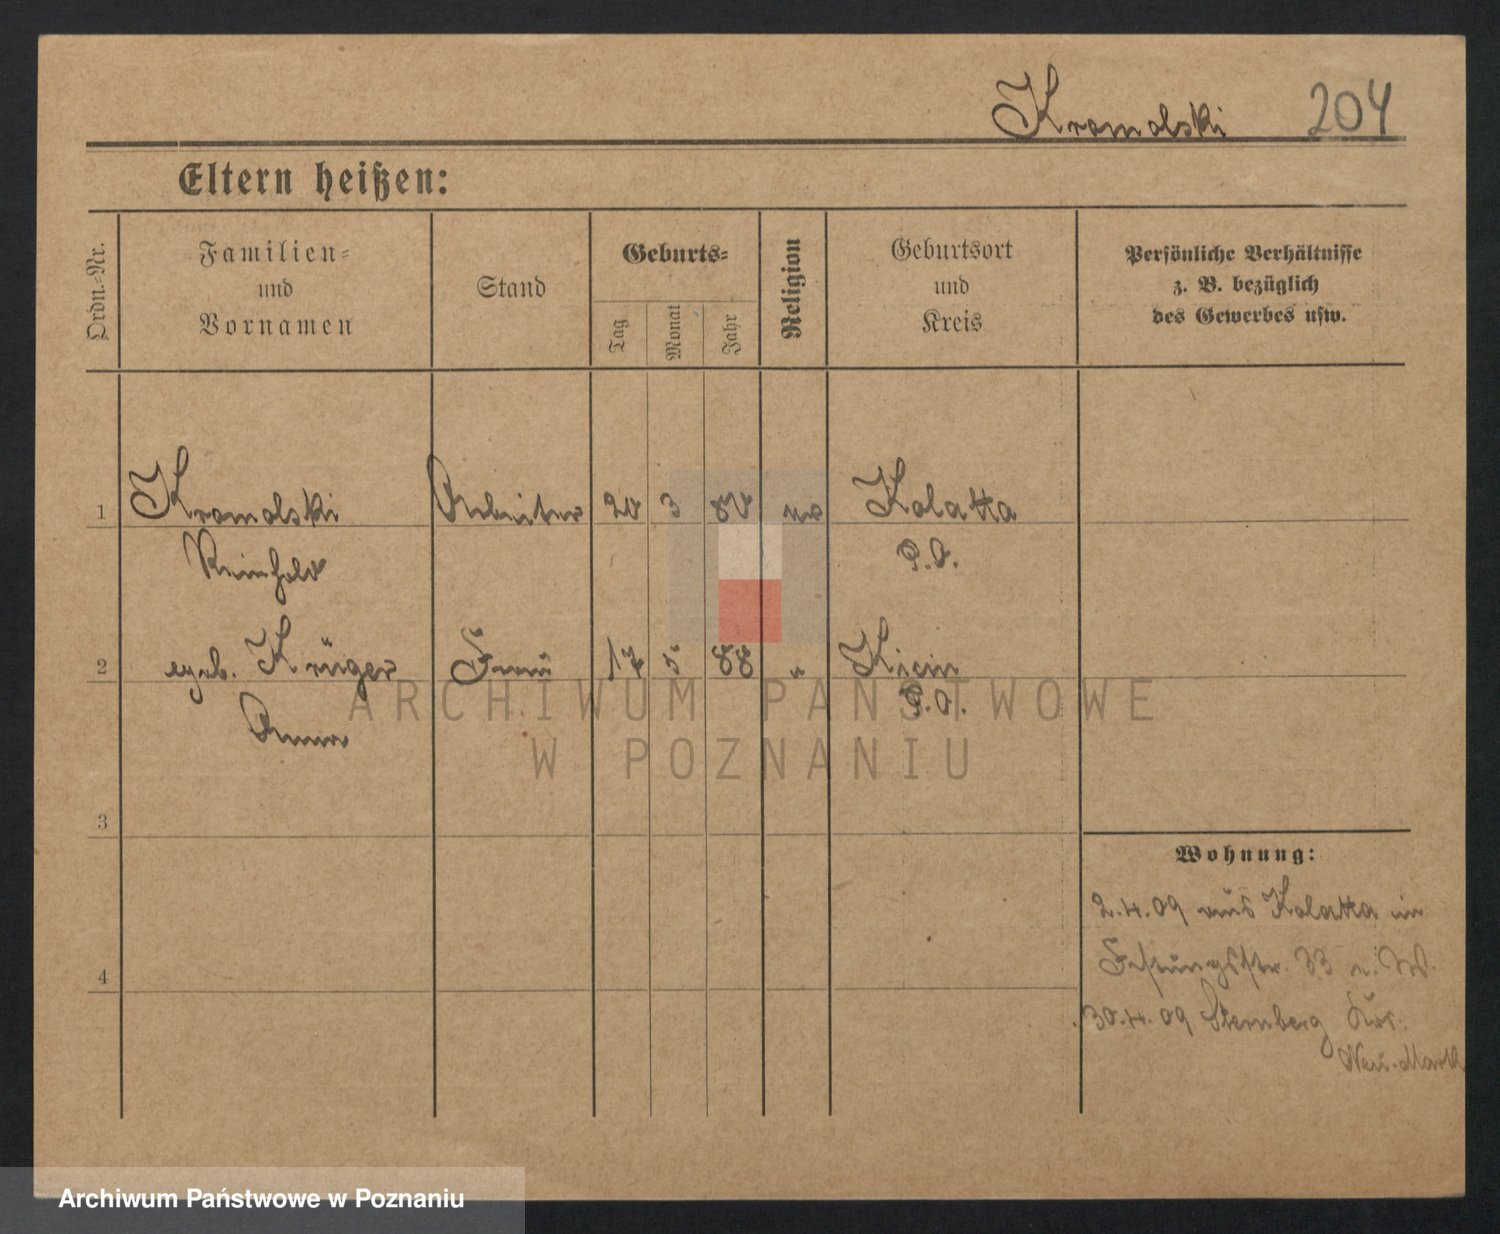 Kromolski 204
Eltern heißen:
Ordn.-Nr.
Familien=
und
Vornamen
Stand
Geburts=
Tag
Monat
Jahr
Religion
Geburtsort
und
Kreis
Persönliche Verhältnisse
z. B. bezüglich
des Gewerbes usw.
1 Kromolski Arbeiter 20 3 80 ev Kolatta
Reinhold P.O.
2 geb. Krüger Frau 17 5 88 " Kicin
Anna P.O.
ARCHIWUM PAŃSTWOWE
W POZNANIU
3
Wohnung:
2.4.09 aus Kolatta in
Festungsstr. 33 b. W.
4
30.4.09 Sternberg Krs.
Neu-Mark
Archiwum Państwowe w Poznaniu